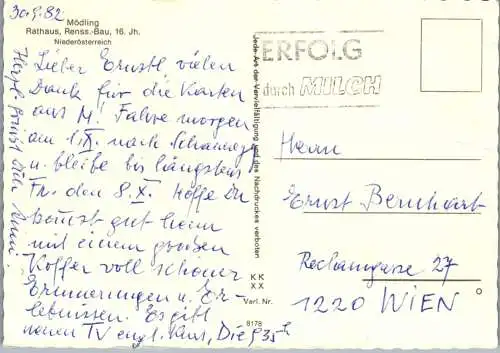 30.9.82
Mödling
Rathaus, Renss.-Bau, 16. Jh.
Niederösterreich
Lieber Ernstl vielen
Dank für die Karten
aus M. Fahre morgen
am 1.X. nach
u. bleibe bis längstens
den 8.X. Hoffe Du
kommst gut heim
mit einem großen
Koffer voll schöner
Erinnerungen u. Er-
lebnissen. Es gibt
neuen TV engl. Kurs, Die 9 35 h
Herzl. grüßt Dich
Jede Art der Vervielfältigung und des Nachdruckes verboten
KK
XX
Verl. Nr.
8178
ERFOLG
durch MILCH
Herrn
Ernst Bernhart
Reclamgasse 27
1220 WIEN